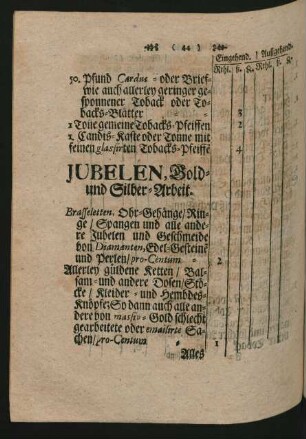 ( 44 )
Eingehend. | Außgehend.
Rthl. ß. Rthl. ß.
50. Pfund Cardus- oder Brief-
wie auch allerley geringer ge-
sponnener Toback oder To-
backs-Blätter 3
1 Tone gemeine Tobacks-Pfeiffen 2
1. Candis-Kaste oder Tonne mit
feinen glasirten Tobacks-Pfeiffe 4
JUBELEN, Gold-
und Silber-Arbeit.
Brasseletten, Ohr-Gehänge/ Rin-
ge / Spangen und alle ande-
re Jubelen und Geschmeide
von Diamanten, Edel-Gesteine
und Perlen/ pro-Centum 2
Allerley güldene Ketten / Bal-
sam- und andere Dosen/ Stö-
cke / Kleider - und Hembdes-
Knöpfe/ So dann auch alle an-
dere von massiv-Gold schlecht
gearbeitete oder emailirte Sa-
chen/ pro-Centum 1
Alles